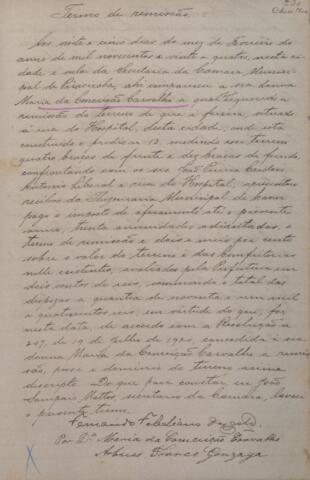 Termo de remissão.
Aos vinte e cinco dias do mez de Fevereiro do
anno de mil novecentos e vinte e quatro, nesta ci-
dade e sala da Secretaria da Camara Munici-
pal de Piracicaba, ahi compareceu a sra donna
Maria da Conceição Carvalho a qual requereu a
remissão do terreno de que é foreira, situado
á rua do Hospital, desta cidade, onde está
construido o predio nº 12, medindo esse terreno
quatro braças de frente e dez braças de fundo,
confrontando com os srs João Caridor,
Antonio Liberal e rua do Hospital, apresentou
recibos da Thesouraria Municipal de haver
pago o imposto de aforamento até o presente
anno, trinta annuidades adiantadas, o
termo de remissão e dois e meio por cento
sobre o valor do terreno e das bemfeitorias
nelle existentes, avaliados pela Prefeitura em
dois contos de reis, sommando o total das
despezas a quantia de noventa e um mil
e quatrocentos reis, em virtude do que, foi
nesta data, de accordo com a Resolução nº
207, de 19 de Julho de 1920, concedida á sra
donna Maria da Conceição Carvalho a remis-
são, posse e dominio do terreno acima
descripto. Do que para constar eu João
Sampaio Mattos, secretario da Camara, lavrei
o presente termo.
Fernando Febeliano da Costa
Por Dª Maria da Conceição Carvalho
Franco Gonzaga